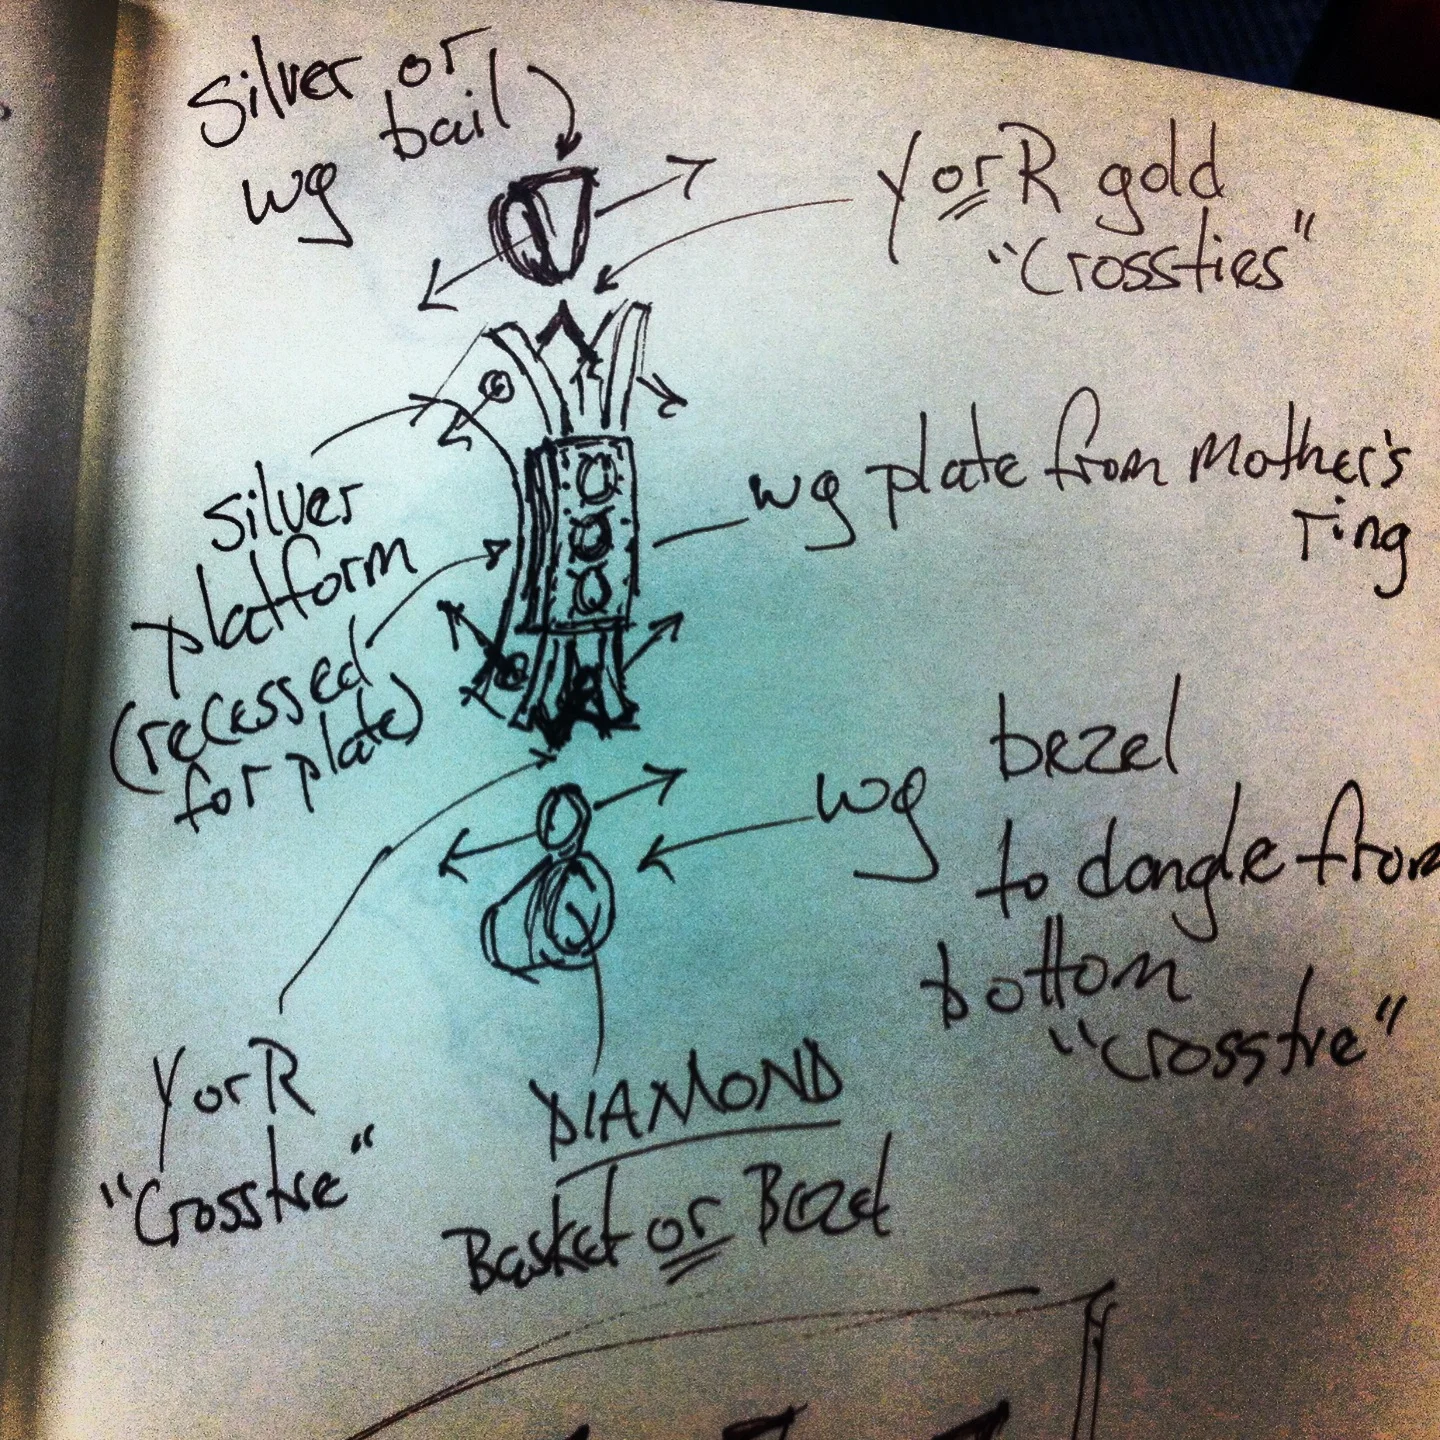 Silver or
wg bail
Y or R gold
"Crossties"
wg plate from Mother's
ring
silver
platform
(recessed
for plate)
wg bezel
to dangle from
bottom
"crosstie"
Y or R
"Crosstie"
DIAMOND
Basket or Bezel